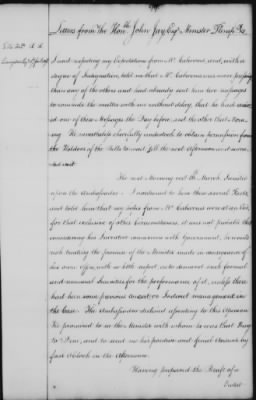 Letters from The Honble John Jay Esqr Minister Plenipo &a
I was repeating my Expectations from Mr Cabarrus, and, with a
degree of Indignation, told us that Mr Cabarrus was more pressing
than any of the others and had already sent him two messages
to conclude the matter with me without delay, that he had receiv
ed one of these Messages the Day before, and the other that Morn
ing. He nevertheless chearfully undertook to obtain permission from
the Holders of the Bills to wait till the next Afternoon
The next Morning 14th March I waited
upon the Ambassador. I mentioned to him these several Facts
and told him that my from Mr Cabarrus were at an End,
for that exclusive of other Circumstances, it was not probable that
considering his Lucrative connexions with Government, he would
risk treating the promise of the Minister made in consequence of
his own offer, with so little respect as to demand such formal
and unusual Securities for the performance of it, unless there
had been some previous concert or Indirect management in
the Case. The Ambassador declined assenting to this Opinion
He promised to see the Minister with whom he was that Day
to Dine, and to send me his positive and final Answer by
four OClock in the Afternoon.
Having prepared the Draft of a